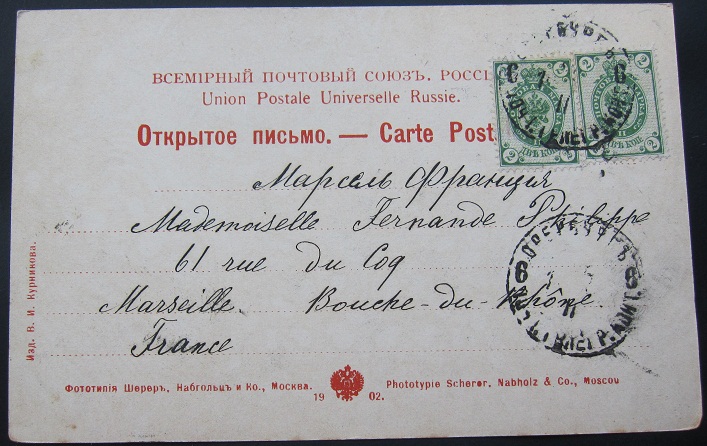 ВСЕМІРНЫЙ ПОЧТОВЫЙ СОЮЗЪ. РОССІ
Union Postale Universelle Russie.
Открытое письмо. — Carte Post
2 2 2 2
ДВѢ КОП. ДВѢ КОП.
Марсель Франція
Mademoiselle Fernande Philippe
61 rue du Coq
Marseille. Bouche-du-Rhône
France
ОРЕНБУРГЪ
6 6
Изд. В. И. Курникова.
Фототипія Шереръ, Набгольцъ и Ко., Москва. Phototypie Scherer, Nabholz & Co., Moscou
19 02.